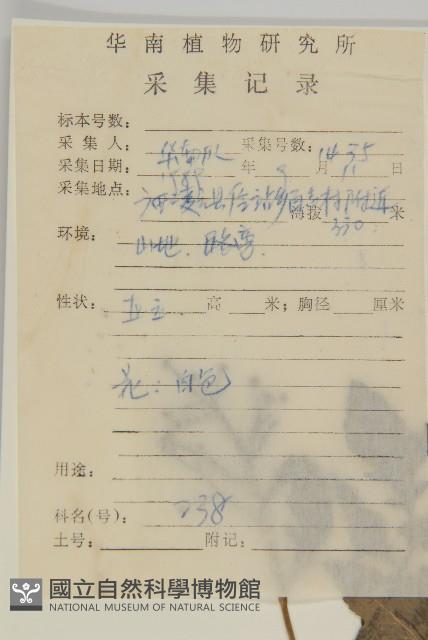 华南植物研究所
采集记录
标本号数:
采集人: 华南队 采集号数: 1435
采集日期: 年 9 月 11 日
采集地点: 县 附近
海拔 330 米
环境: 山地.
性状: 直立. 高 米; 胸径 厘米
花: 白色
用途:
科名(号): 238
土号: 附记:
國立自然科學博物館
NATIONAL MUSEUM OF NATURAL SCIENCE